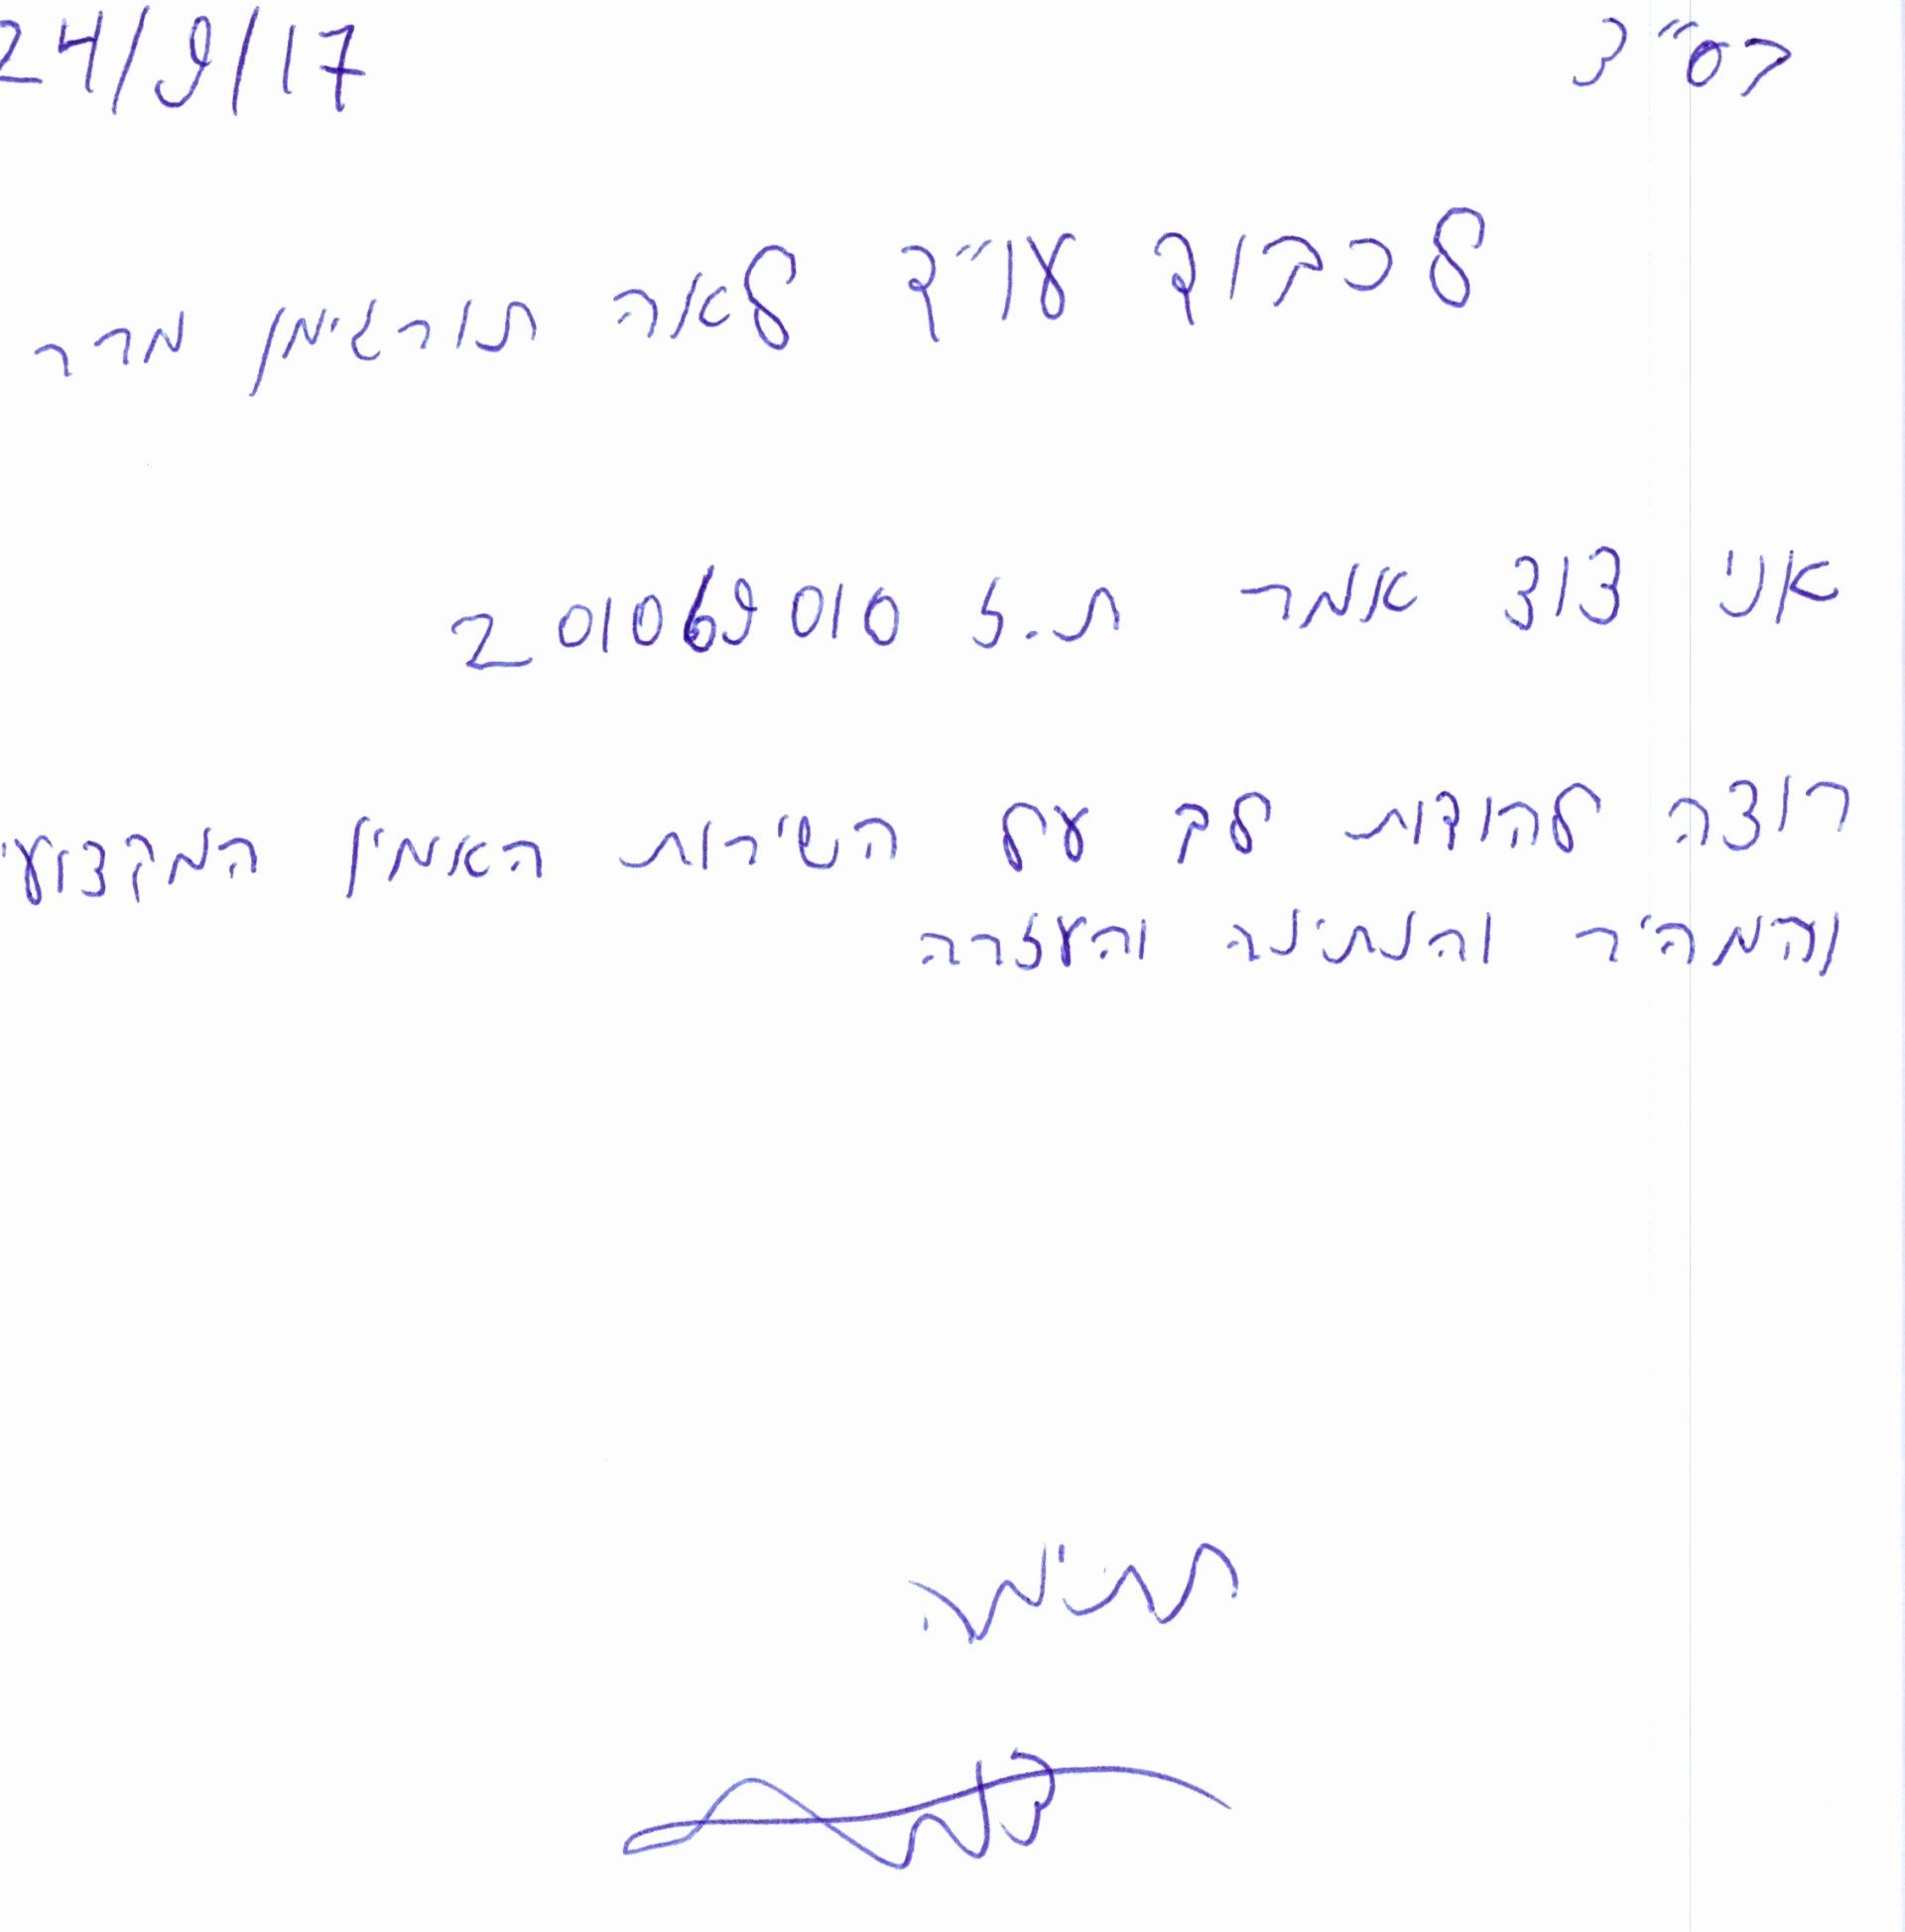 בס"ד 24/9/17
לכבוד עו"ד לאה תורגימן מרר
אני דוד אמר ת.ז 201069010
רוצה להודות לך על השירות האמין המקצועי
והמהיר והנתינה והעזרה
חתימה